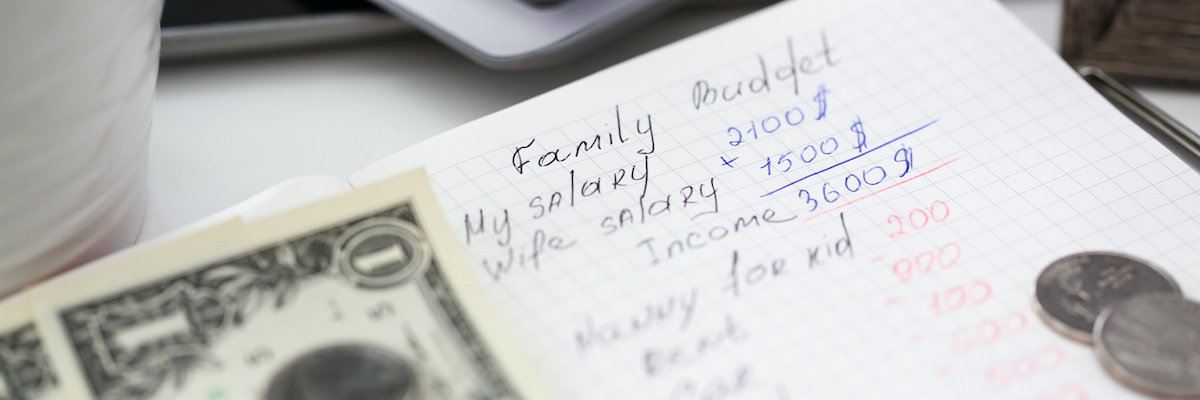 Family Budget
My salary 2100 $
Wife salary + 1500 $
Income 3600 $
Nanny for kid 200
Rent - 900
Car - 100
- 600
- 500
1